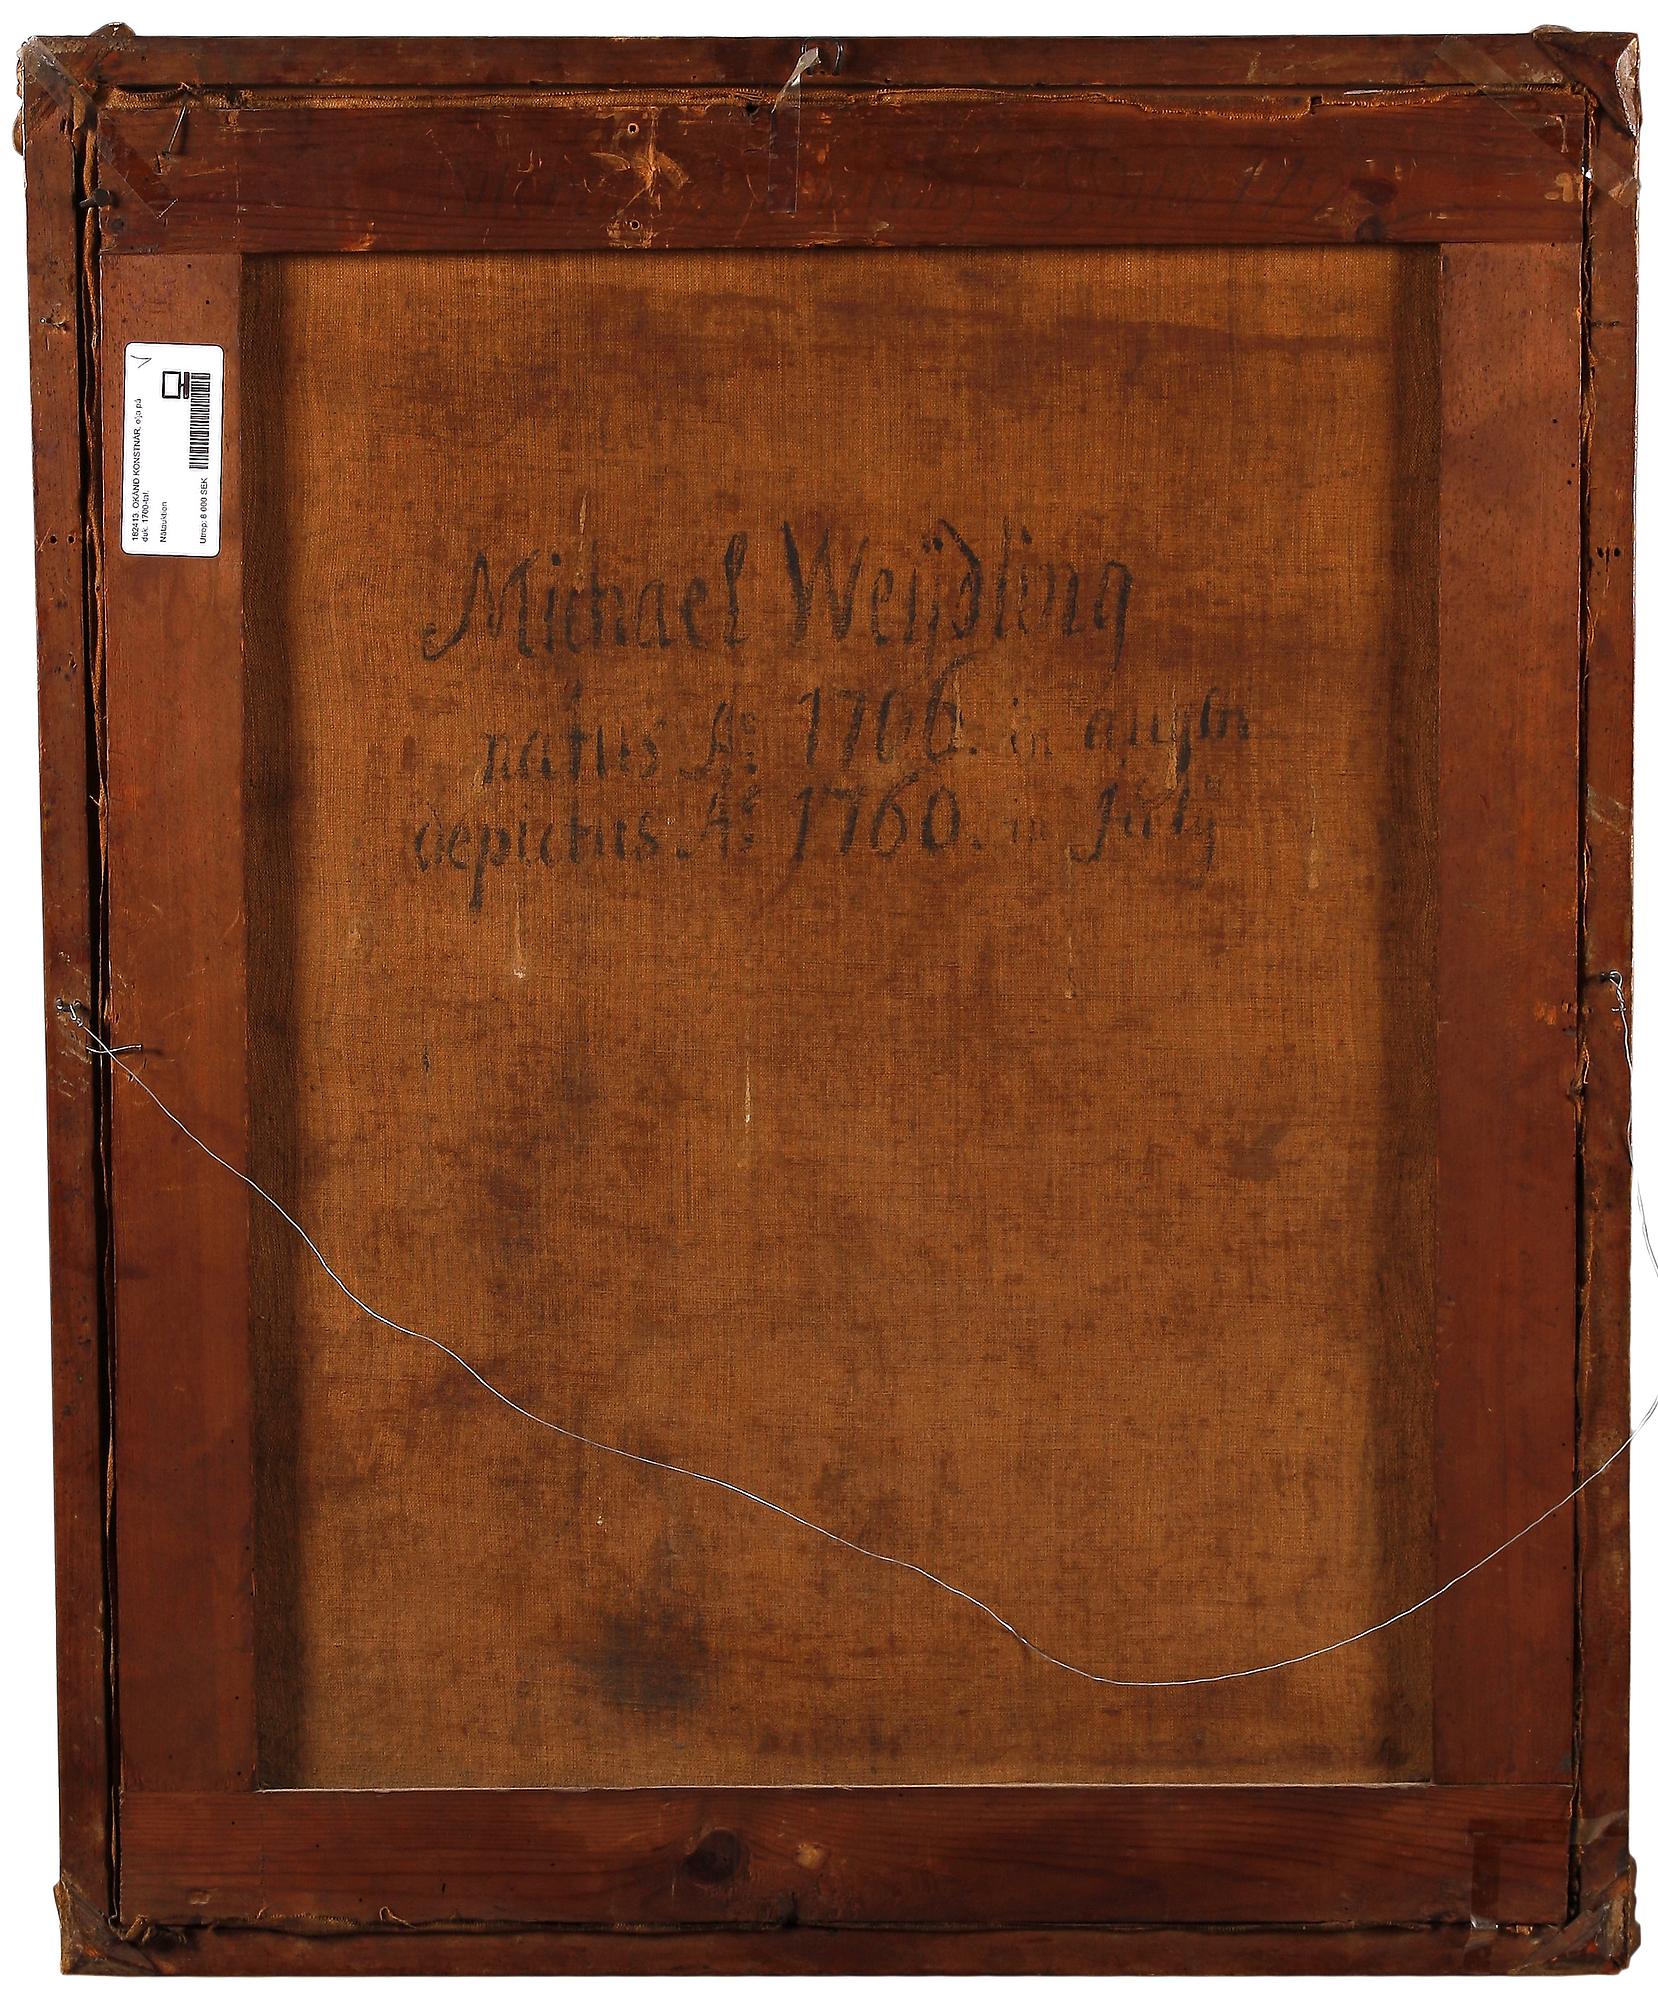 182413. OKÄND KONSTNÄR, olja på
duk. 1700-tal.
Nätauktion
Utrop: 8 000 SEK
Michael Weÿdling
natus Aº 1706. in
depictus Aº 1760. in Julÿ